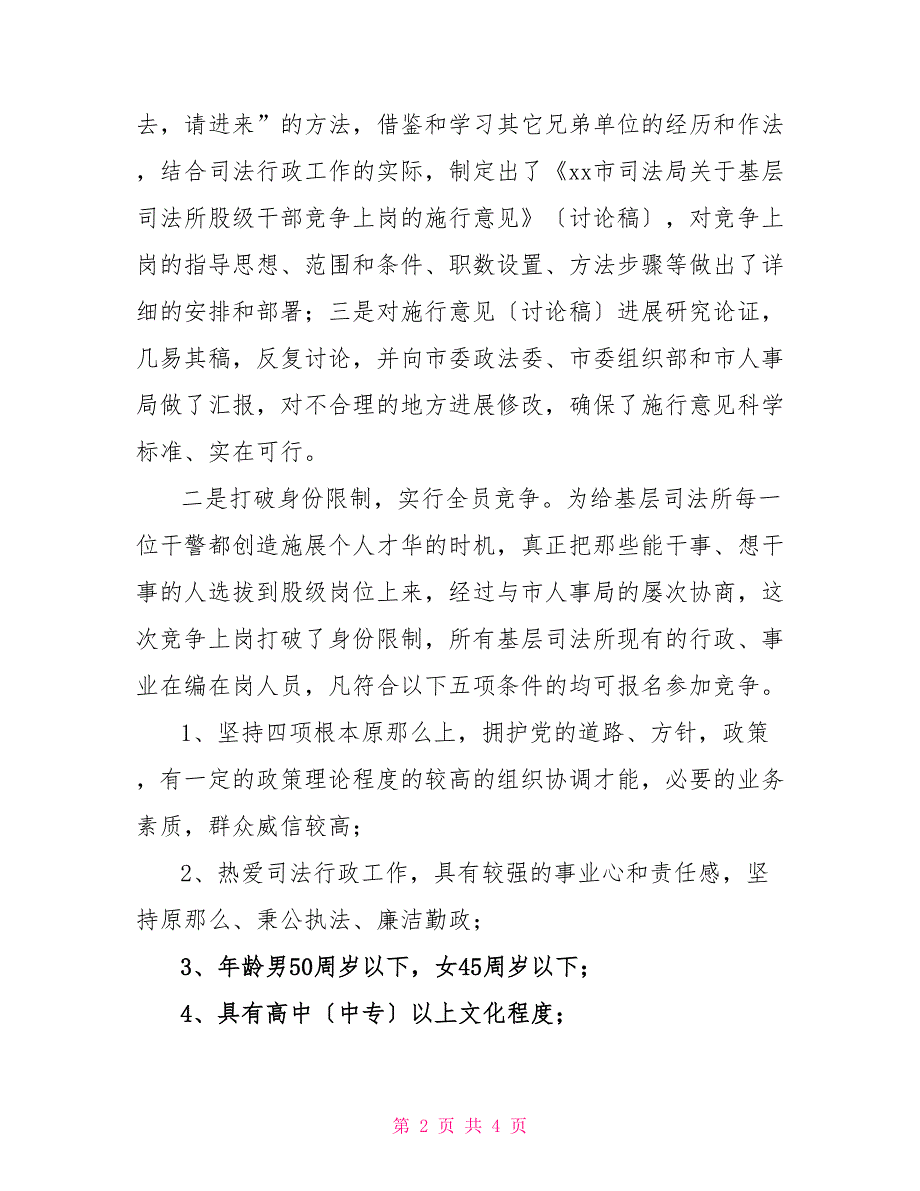 去，请进来”的方法，借鉴和学习其它兄弟单位的经历和作法
，结合司法行政工作的实际，制定出了《xx市司法局关于基层
司法所股级干部竞争上岗的施行意见》〔讨论稿〕，对竞争上
岗的指导思想、范围和条件、职数设置、方法步骤等做出了详
细的安排和部署；三是对施行意见〔讨论稿〕进展研究论证，
几易其稿，反复讨论，并向市委政法委、市委组织部和市人事
局做了汇报，对不合理的地方进展修改，确保了施行意见科学
标准、实在可行。
二是打破身份限制，实行全员竞争。为给基层司法所每一
位干警都创造施展个人才华的时机，真正把那些能干事、想干
事的人选拔到股级岗位上来，经过与市人事局的屡次协商，这
次竞争上岗打破了身份限制，所有基层司法所现有的行政、事
业在编在岗人员，凡符合以下五项条件的均可报名参加竞争。
1、坚持四项根本原那么上，拥护党的道路、方针，政策
，有一定的政策理论程度的较高的组织协调才能，必要的业务
素质，群众威信较高；
2、热爱司法行政工作，具有较强的事业心和责任感，坚
持原那么、秉公执法、廉洁勤政；
3、年龄男50周岁以下，女45周岁以下；
4、具有高中〔中专〕以上文化程度；
第 2 页 共 4 页